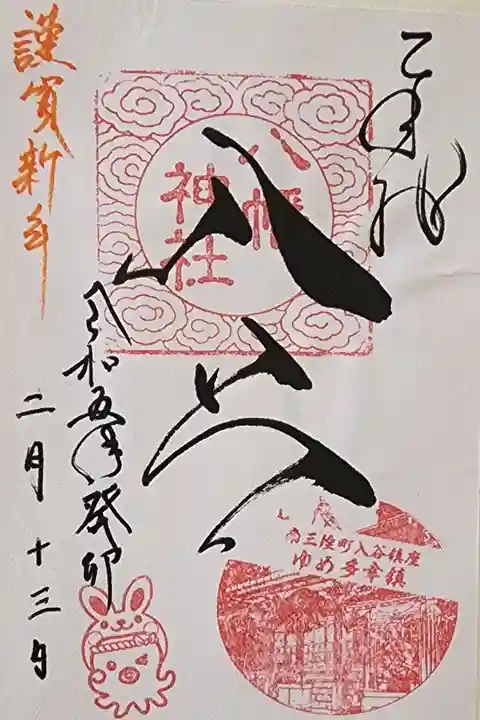 奉拝
八幡
神社
南三陸町入谷鎮座
ゆめ多幸鎮
令和五年癸卯
二月十三日
謹賀新年